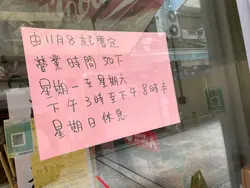 由11月8起暫定
營業時間如下
星期一至星期六
下午3時至下午8時半
星期日休息